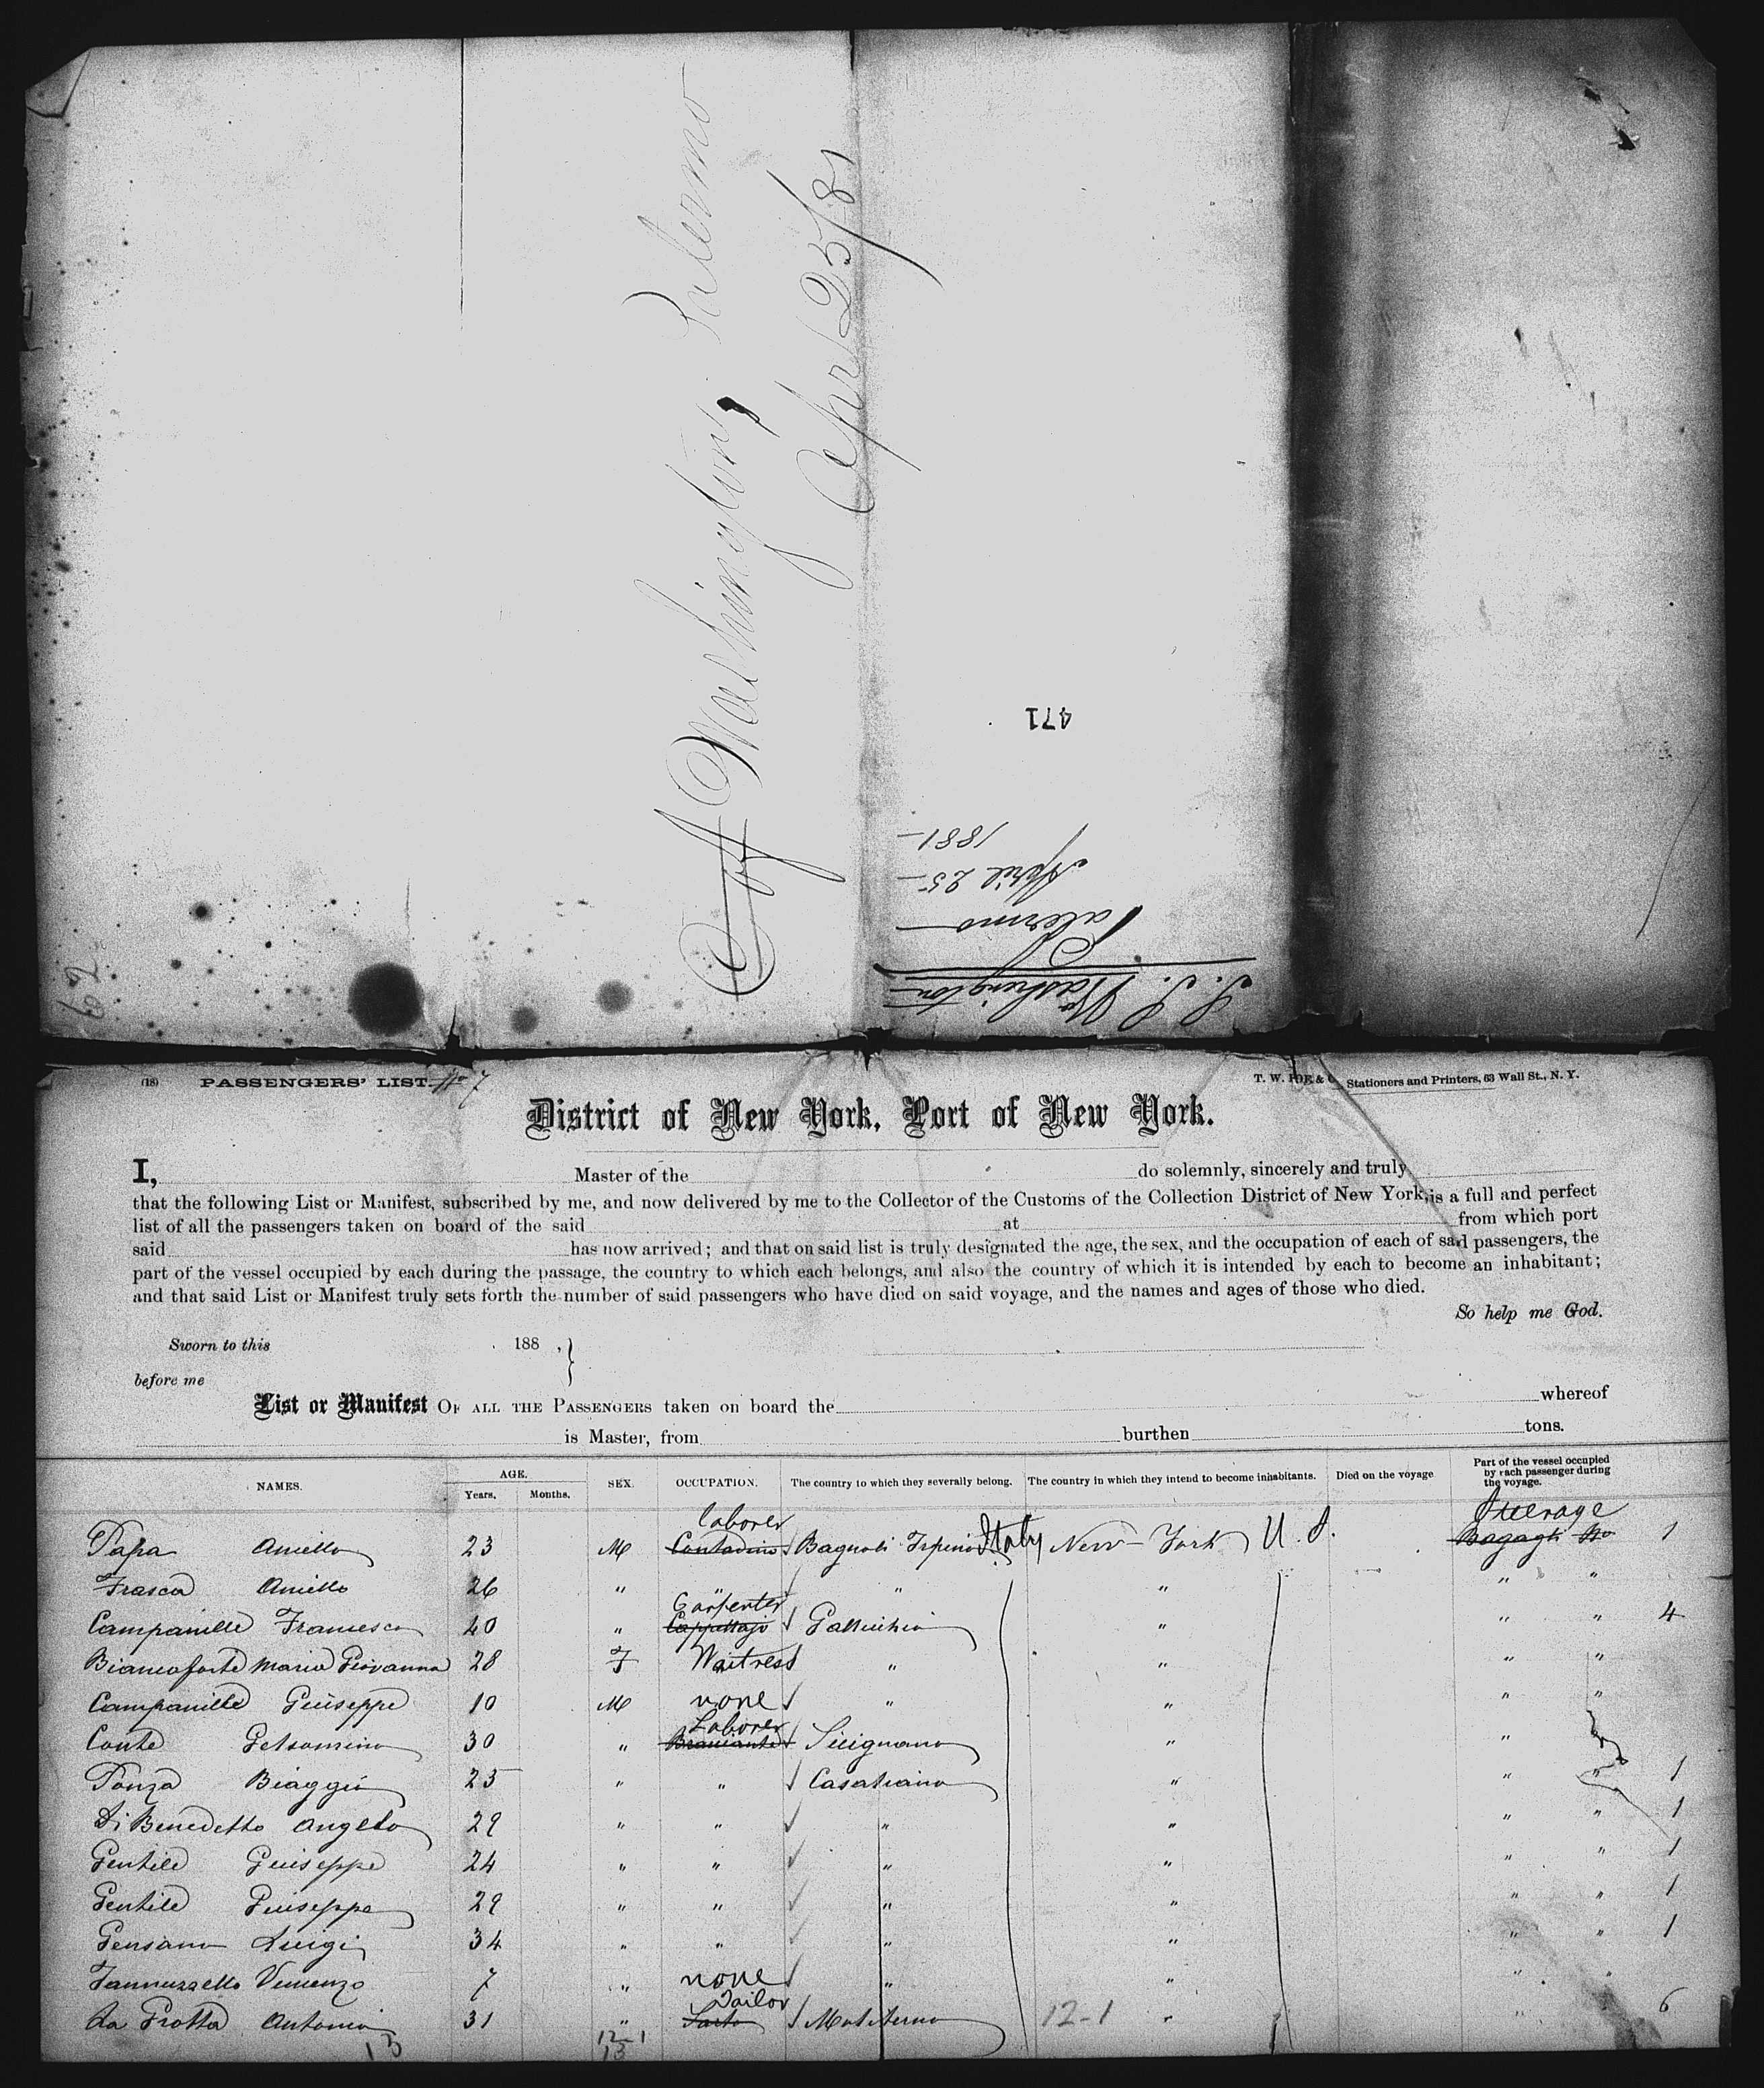 Ss Washington, Palermo
Apr 25/81
471
S. S. Washington
Palermo
April 25
1881
62
(18) PASSENGERS' LIST. No 7
T. W. & Stationers and Printers, 63 Wall St., N. Y.
District of New York, Port of New York.
I, Master of the do solemnly, sincerely and truly
that the following List or Manifest, subscribed by me, and now delivered by me to the Collector of the Customs of the Collection District of New York, is a full and perfect
list of all the passengers taken on board of the said at from which port
said has now arrived; and that on said list is truly designated the age, the sex, and the occupation of each of said passengers, the
part of the vessel occupied by each during the passage, the country to which each belongs, and also the country of which it is intended by each to become an inhabitant;
and that said List or Manifest truly sets forth the number of said passengers who have died on said voyage, and the names and ages of those who died.
So help me God.
Sworn to this 188 ,
before me
List or Manifest OF ALL THE PASSENGERS taken on board the whereof
is Master, from burthen tons.
NAMES. AGE. Years. Months. SEX. OCCUPATION. The country to which they severally belong. The country in which they intend to become inhabitants. Died on the voyage Part of the vessel occupied by each passenger during the voyage.
laborer Steerage
Papa Aniello 23 M Contadino Bagnoli Irpino Italy New-York U. S. Bagagli No 1
Frasca Aniello 26 " " " " " "
Carpenter
Campanille Francesco 40 " Cappellajo Gallicchio " " " 4
Biancoforte Maria Giovanna 28 F Waitress " " " "
Campanille Giuseppe 10 M none " " " "
Laborer
Conte Gelsomino 30 " Bracciante Sicignano " "
Ponza Biaggio 25 " " Casalciano " " " 1
Di Benedetto Angelo 29 " " " " " " 1
Gentile Giuseppe 24 " " " " " " 1
Gentile Giuseppe 29 " " " " " " 1
Gensano Luigi 34 " " " " " " 1
Iannuzzello Vincenzo 7 " none " " " "
Tailor
La Grotta Antonio 31 " Sarto Moliterno 12-1 " " 6
13 12-1
13